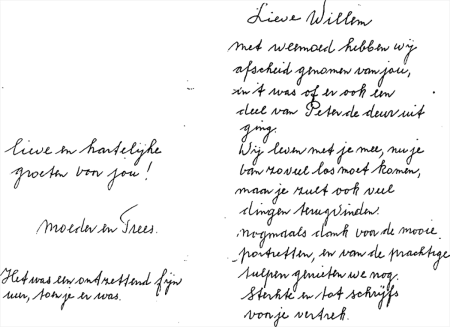 Lieve Willem
met weemoed hebben wij
afscheid genomen van jou,
en 't was of er ook een
deel van Peter de deur uit
ging.
Wij leven met je mee, nu je
van zoveel los moet komen,
maar je zult ook veel
dingen terugvinden.
nogmaals dank voor de mooie
portretten, en van de prachtige
tulpen genieten we nog.
Sterkte en tot schrijfs
voor je vertrek.
lieve en hartelijke
groeten van jou!
moeder en Trees.
Het was een ontzettend fijn
uur, toen je er was.